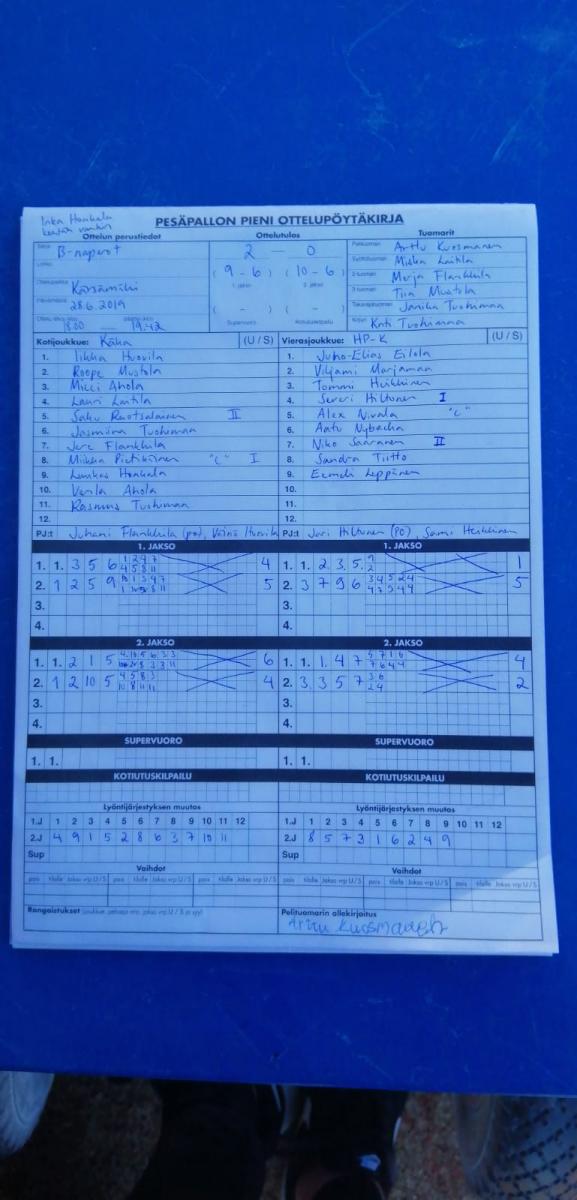 Inka Honkala
PESÄPALLON PIENI OTTELUPÖYTÄKIRJA
Ottelun perustiedot Ottelutulos Tuomarit
B-naperot 2 — 0 Arttu Kuosmanen
Miska Laitila
(9-6) (10-6) Merja Flankkila
Kärsämäki Tiia Mustola
28.6.2019 ( - ) ( - ) Janika Tuohimaa
18.00 — 19.42 Supervuoro Kotiutuskilpailu Kati Tuohimaa
Kotijoukkue: KäKa (U / S) Vierasjoukkue: HP-K (U / S)
1. Iikka Huovila 1. Juho-Elias Eilola
2. Roope Mustola 2. Viljami Marjamaa
3. Micci Ahola 3. Tommi Heikkinen
4. Lauri Laitila 4. Sereri Hiltunen I
5. Saku Ruotsalainen II 5. Alex Nivala "C"
6. Jasmiina Tuohimaa 6. Aatu Nybacka
7. Jere Flankkila 7. Niko Saaranen II
8. Miikka Pietikäinen "C" I 8. Sandra Tiitto
9. Luukas Honkala 9. Eemeli Leppänen
10. Venla Ahola 10.
11. Rasmus Tuohimaa 11.
12. 12.
PJ:t Juhani Flankkila (po), Väinö Huovila PJ:t Jari Hiltunen (PO) Sami Heikkinen
1. JAKSO 1. JAKSO
1. 1. 3 5 6 4 1. 1. 2. 3. 5. 1
2. 1 2 5 9 5 2. 3 7 9 6 5
3. 3.
4. 4.
2. JAKSO 2. JAKSO
1. 1. 2 1 5 6 1. 1. 1. 4 7 4
2. 1 2 10 5 4 2. 3. 3 5 7 2
3. 3.
4. 4.
SUPERVUORO SUPERVUORO
1. 1. 1. 1.
KOTIUTUSKILPAILU KOTIUTUSKILPAILU
Lyöntijärjestyksen muutos Lyöntijärjestyksen muutos
1.J 1 2 3 4 5 6 7 8 9 10 11 12 1.J 1 2 3 4 5 6 7 8 9 10 11 12
2.J 4 9 1 5 2 8 6 3 7 10 11 2.J 8 5 7 3 1 6 2 4 9
Sup Sup
Vaihdot Vaihdot
pois tilalle Jakso vrp U / S pois tilalle Jakso vrp U / S pois tilalle Jakso vrp U / S pois tilalle Jakso vrp U / S
Rangaistukset (joukkue, pelaaja nro, jakso vrp U / S ja syy) Pelituomarin allekirjoitus
Arttu Kuosmanen